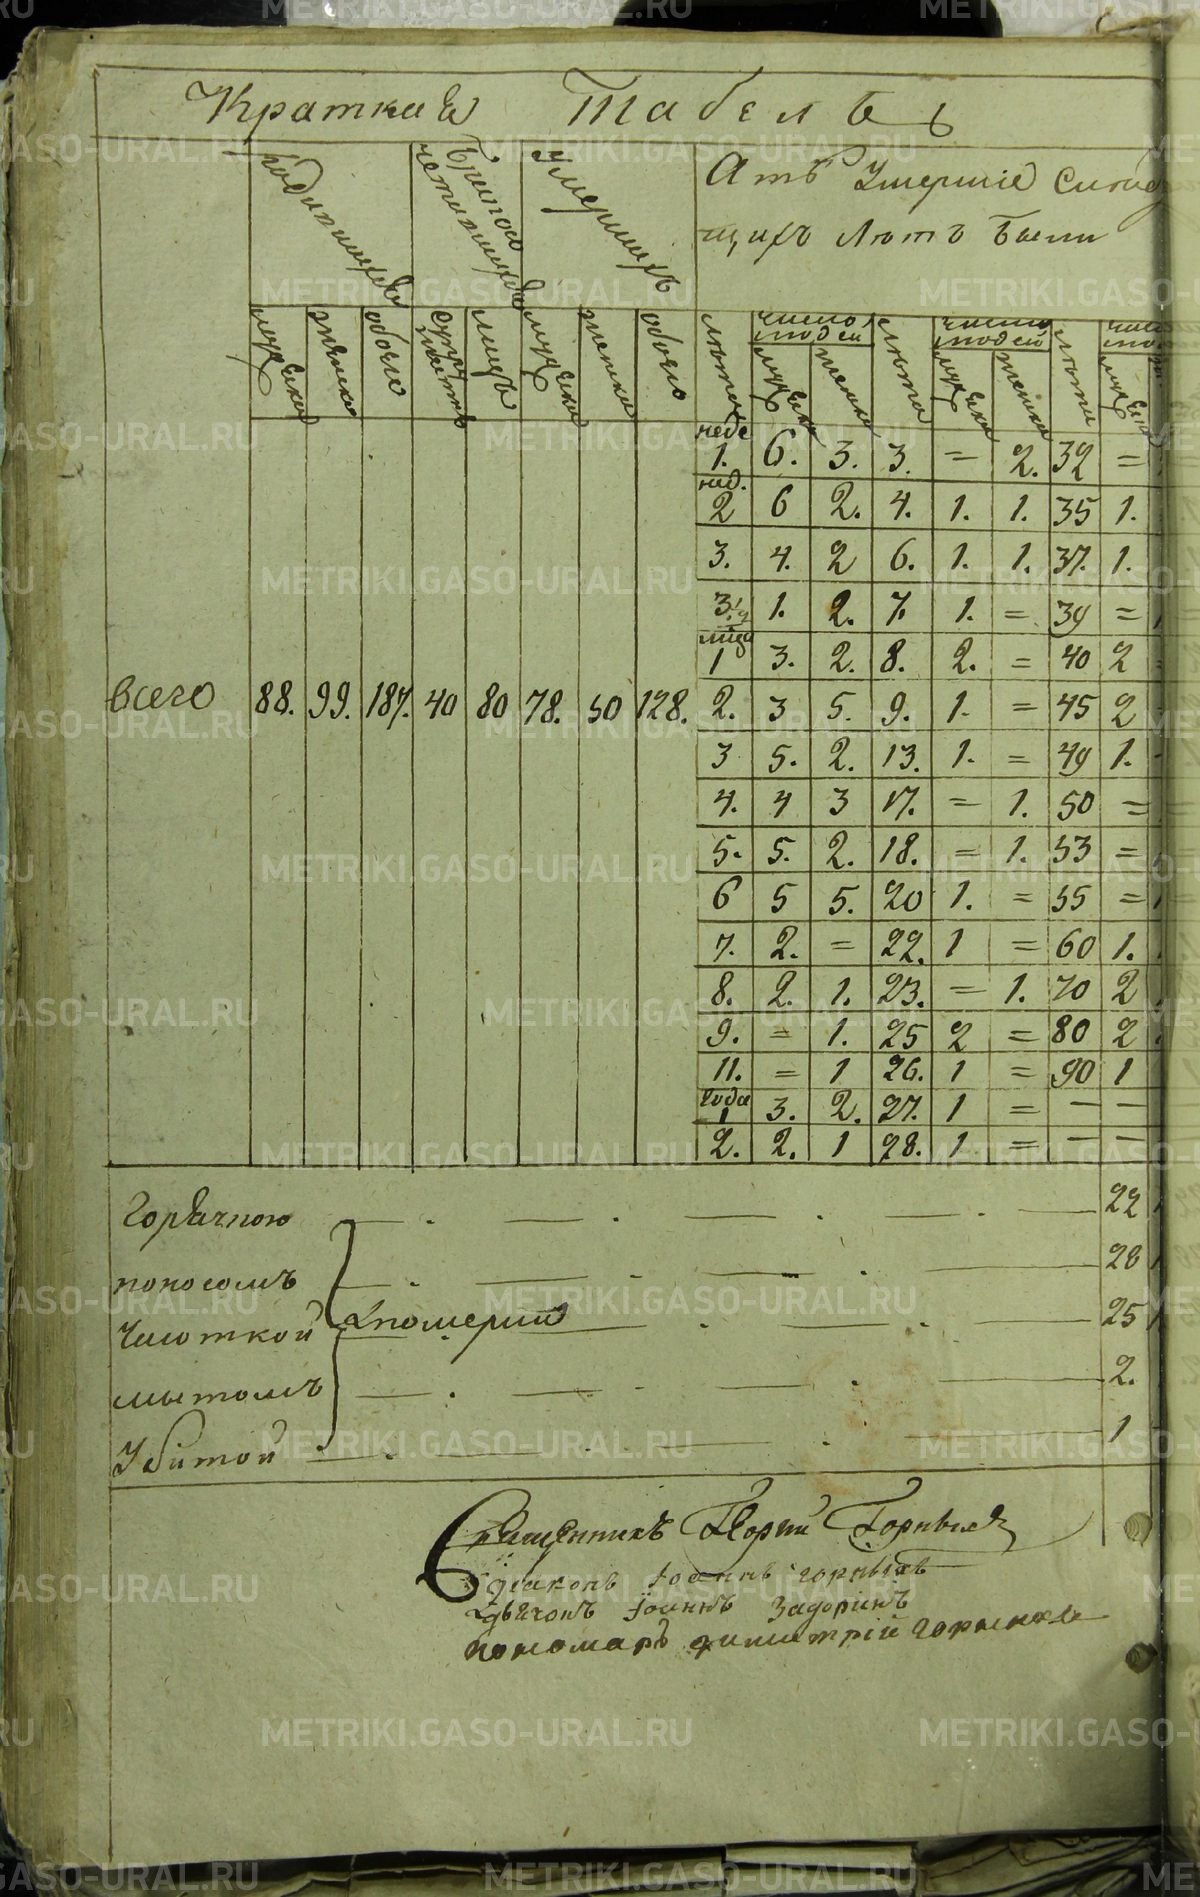 Краткая Табель
родившихся
Бракосочетавшихся
Умершихъ
А тѣ Умершіе
щихъ лѣтъ были
мужска женска обоего супружествъ лицъ мужска женска обоего лѣта число людей лѣта число людей лѣта
мужска женска мужска женска
неде 1. 6. 3. 3. = 2. 32 =
нед. 2 6 2. 4. 1. 1. 35 1.
3. 4. 2 6. 1. 1. 37. 1.
3 1/2 1. 2. 7. 1. = 39 =
1 3. 2. 8. 2. = 40 2
всего 88. 99. 187. 40 80 78. 50 128. 2. 3 5. 9. 1. = 45 2
3 5. 2. 13. 1. = 49 1.
4. 4 3 17. = 1. 50 =
5. 5. 2. 18. = 1. 53 =
6 5 5. 20 1. = 55 =
7. 2. = 22. 1 = 60 1.
8. 2. 1. 23. = 1. 70 2
9. = 1. 25 2 = 80 2
11. = 1 26. 1 = 90 1
года 1 3. 2. 27. 1 = — —
2. 2. 1 28. 1 = — —
Горячкою 22
поносомъ 28
Чахоткой померли 25
мытомъ 2.
Убитой 1
Священникъ Георгій Горныхъ
діаконъ Іоаннъ Горныхъ
дьячокъ Іоаннъ Задоринъ
пономарь Димитрій Горныхъ
METRIKI.GASO-URAL.RU